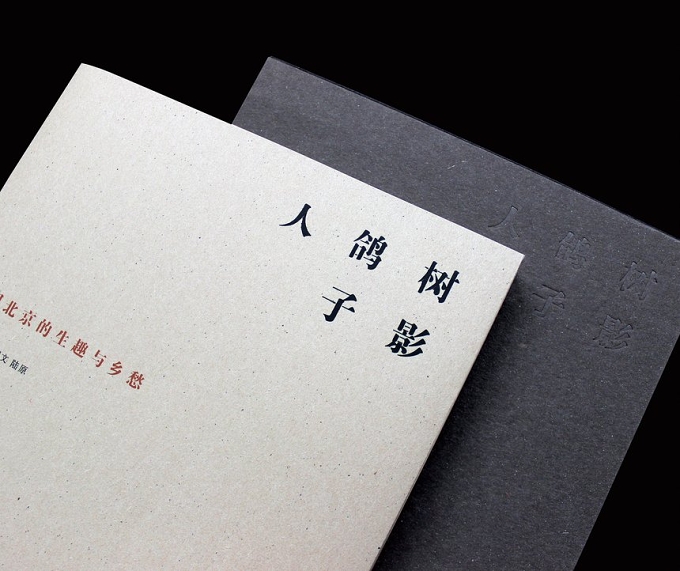 树影
鸽子
人
北京的生趣与乡愁
文 陆原
树影
鸽子
人